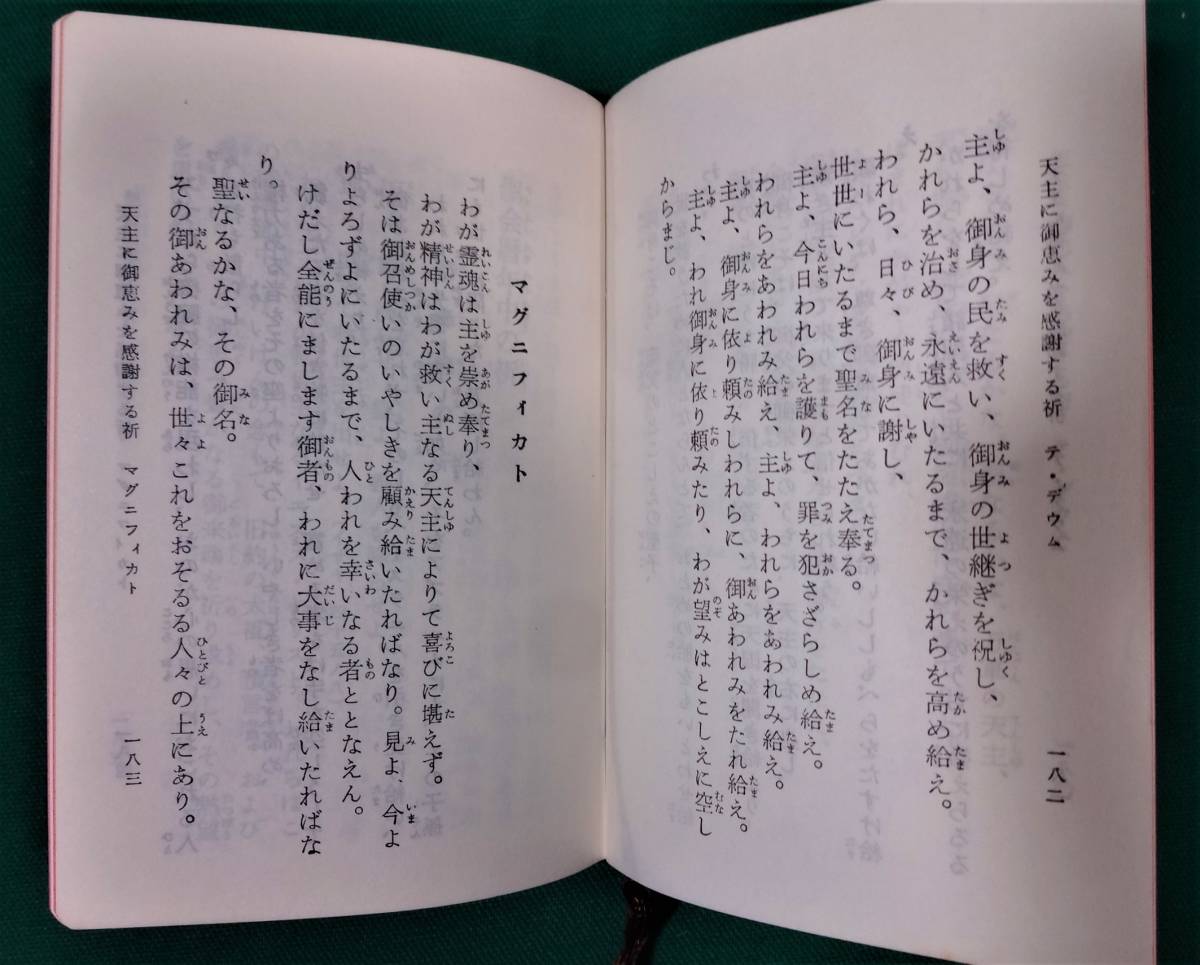 天主に御恵みを感謝する祈 テ・デウム 一八二
主よ、御身の民を救い、御身の世継ぎを祝し、
かれらを治め、永遠にいたるまで、かれらを高め給え。
われら、日々、御身に謝し、
世世にいたるまで聖名をたたえ奉る。
主よ、今日われらを護りて、罪を犯さざらしめ給え。
われらをあわれみ給え、主よ、われらをあわれみ給え。
主よ、御身に依り頼みしわれらに、御あわれみをたれ給え。
主よ、われ御身に依り頼みたり、わが望みはとこしえに空し
からまじ。
マグニフィカト
わが霊魂は主を崇め奉り、
わが精神はわが救い主なる天主によりて喜びに堪えず。
そは御召使いのいやしきを顧み給いたればなり。見よ、今よ
りよろずよにいたるまで、人われを幸いなる者ととなえん。
けだし全能にまします御者、われに大事をなし給いたればな
り。
聖なるかな、その御名。
その御あわれみは、世々これをおそるる人々の上にあり。
天主に御恵みを感謝する祈 マグニフィカト 一八三